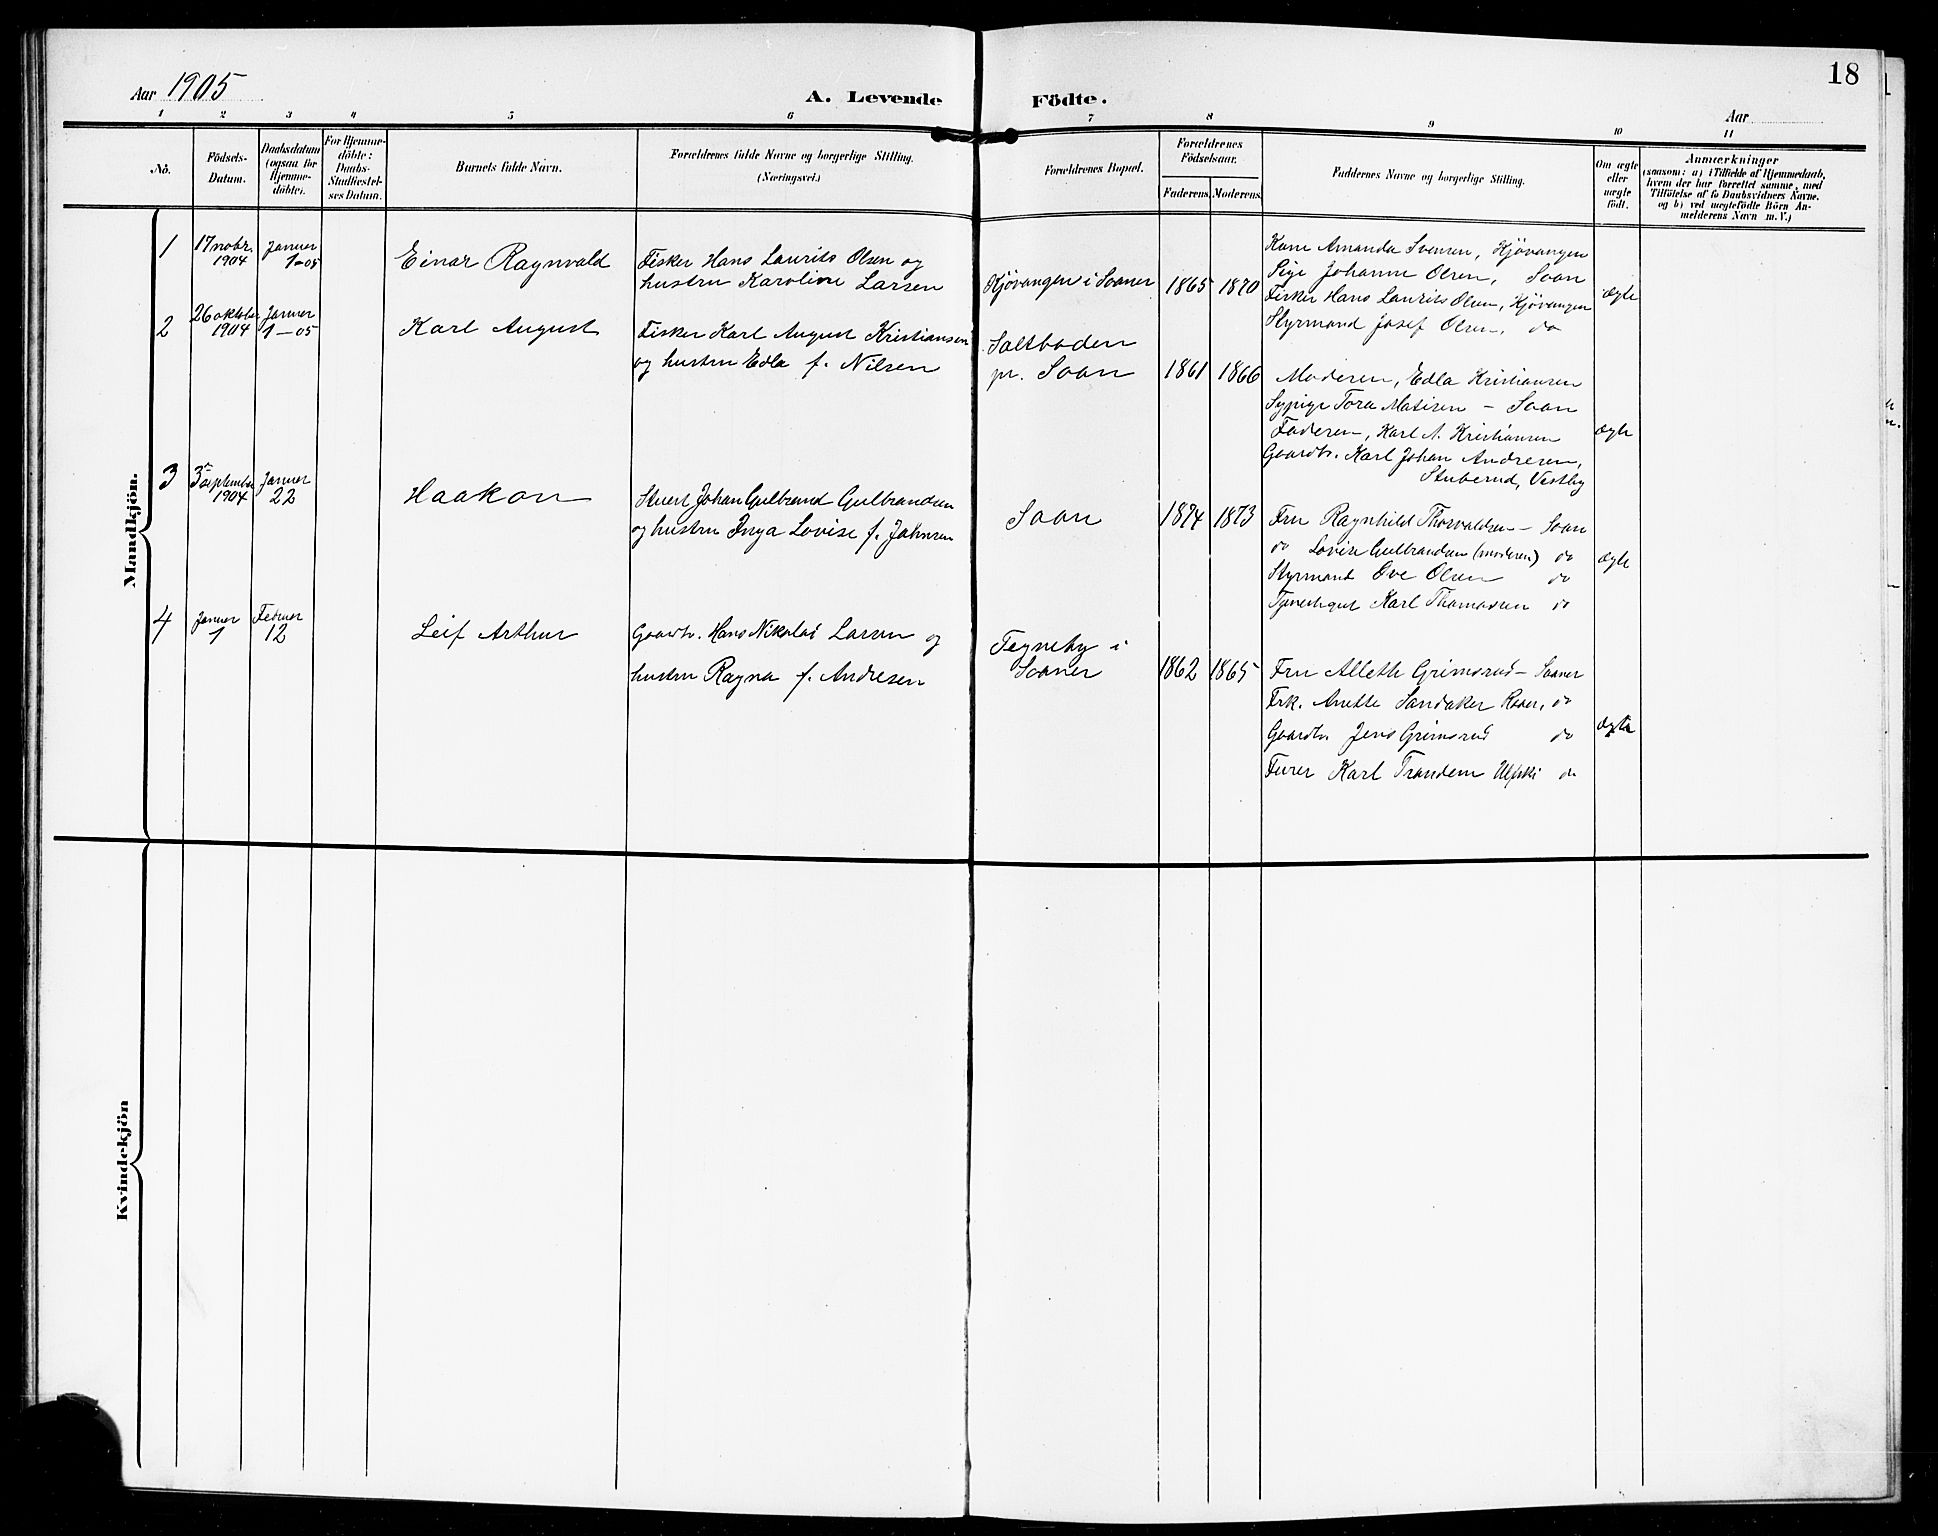 18
Aar 1905
A. Levende Födte.
Aar
1 2 3 4 5 6 7 8 9 10 11
No.
Födsels-
Datum.
Daabsdatum
(ogsaa for
Hjemme-
döbte).
For Hjemme-
döbte:
Daabs-
Stadfæstel-
ses Datum.
Barnets fulde Navn.
Forældrenes fulde Navne og borgerlige Stilling.
(Næringsvei.)
Forældrenes Bopæl.
Forældrenes
Födselsaar.
Faderens. Moderens.
Faddernes Navne og borgerlige Stilling.
Om ægte
eller
uægte
födt.
Anmærkninger
(saasom: a) i Tilfælde af Hjemmedaab,
hvem der har forrettet samme, med
Tilföielse af to Daabsvidners Navne.
og b) ved uægtefödte Börn An-
melderens Navn m. V.)
Mandkjön.
1
17 nobr.
1904
Januer
1-05
Einar Ragnvald
Fisker Hans Laurits Olsen og
hustru Karoline Larsen
Kjøvangen i Soaner
1865 1870
Kone Amanda Svensen, Kjøvangen
Pige Johanne Olsen, Soon
Fisker Hans Laurits Olsen, Kjøvangen
Styrmand Josef Olsen, do
ægte
2
26 oktober
1904
Januer
1-05
Karl August
Fisker Karl August Kristiansen
og hustru Edla f. Nilsen
Saltboden
pr. Soon
1861 1866
Moderen, Edla Kristiansen
Sypige Tora Matisen - Soon
Faderen, Karl A. Kristiansen
Gaardbr. Karl Johan Andresen,
Stuberud, Vestby
ægte
3
3 september
1904
Januer
22
Haakon
Stuert Johan Gulbrand Gulbrandsen
og hustru Inga Lovise f. Johnsen
Soon
1874 1873
Fru Ragnhild Thorvaldsen - Soon
do Lovise Gulbrandsen (moderen) do
Styrmand Ove Olsen do
Tjenestegut Karl Thomassen do
ægte
4
Januer
1
Februer
12
Leif Arthur
Gaardbr. Hans Nikolai Larsen og
hustru Ragna f. Andresen
Tegneby i
Soaner
1862 1865
Fru Alleth Grimsrud - Soaner
Frk. Anette Sandaker Roaer, do
Gaardbr. Jens Grimsrud do
Furer Karl Trandem do
ægte
Kvindekjön